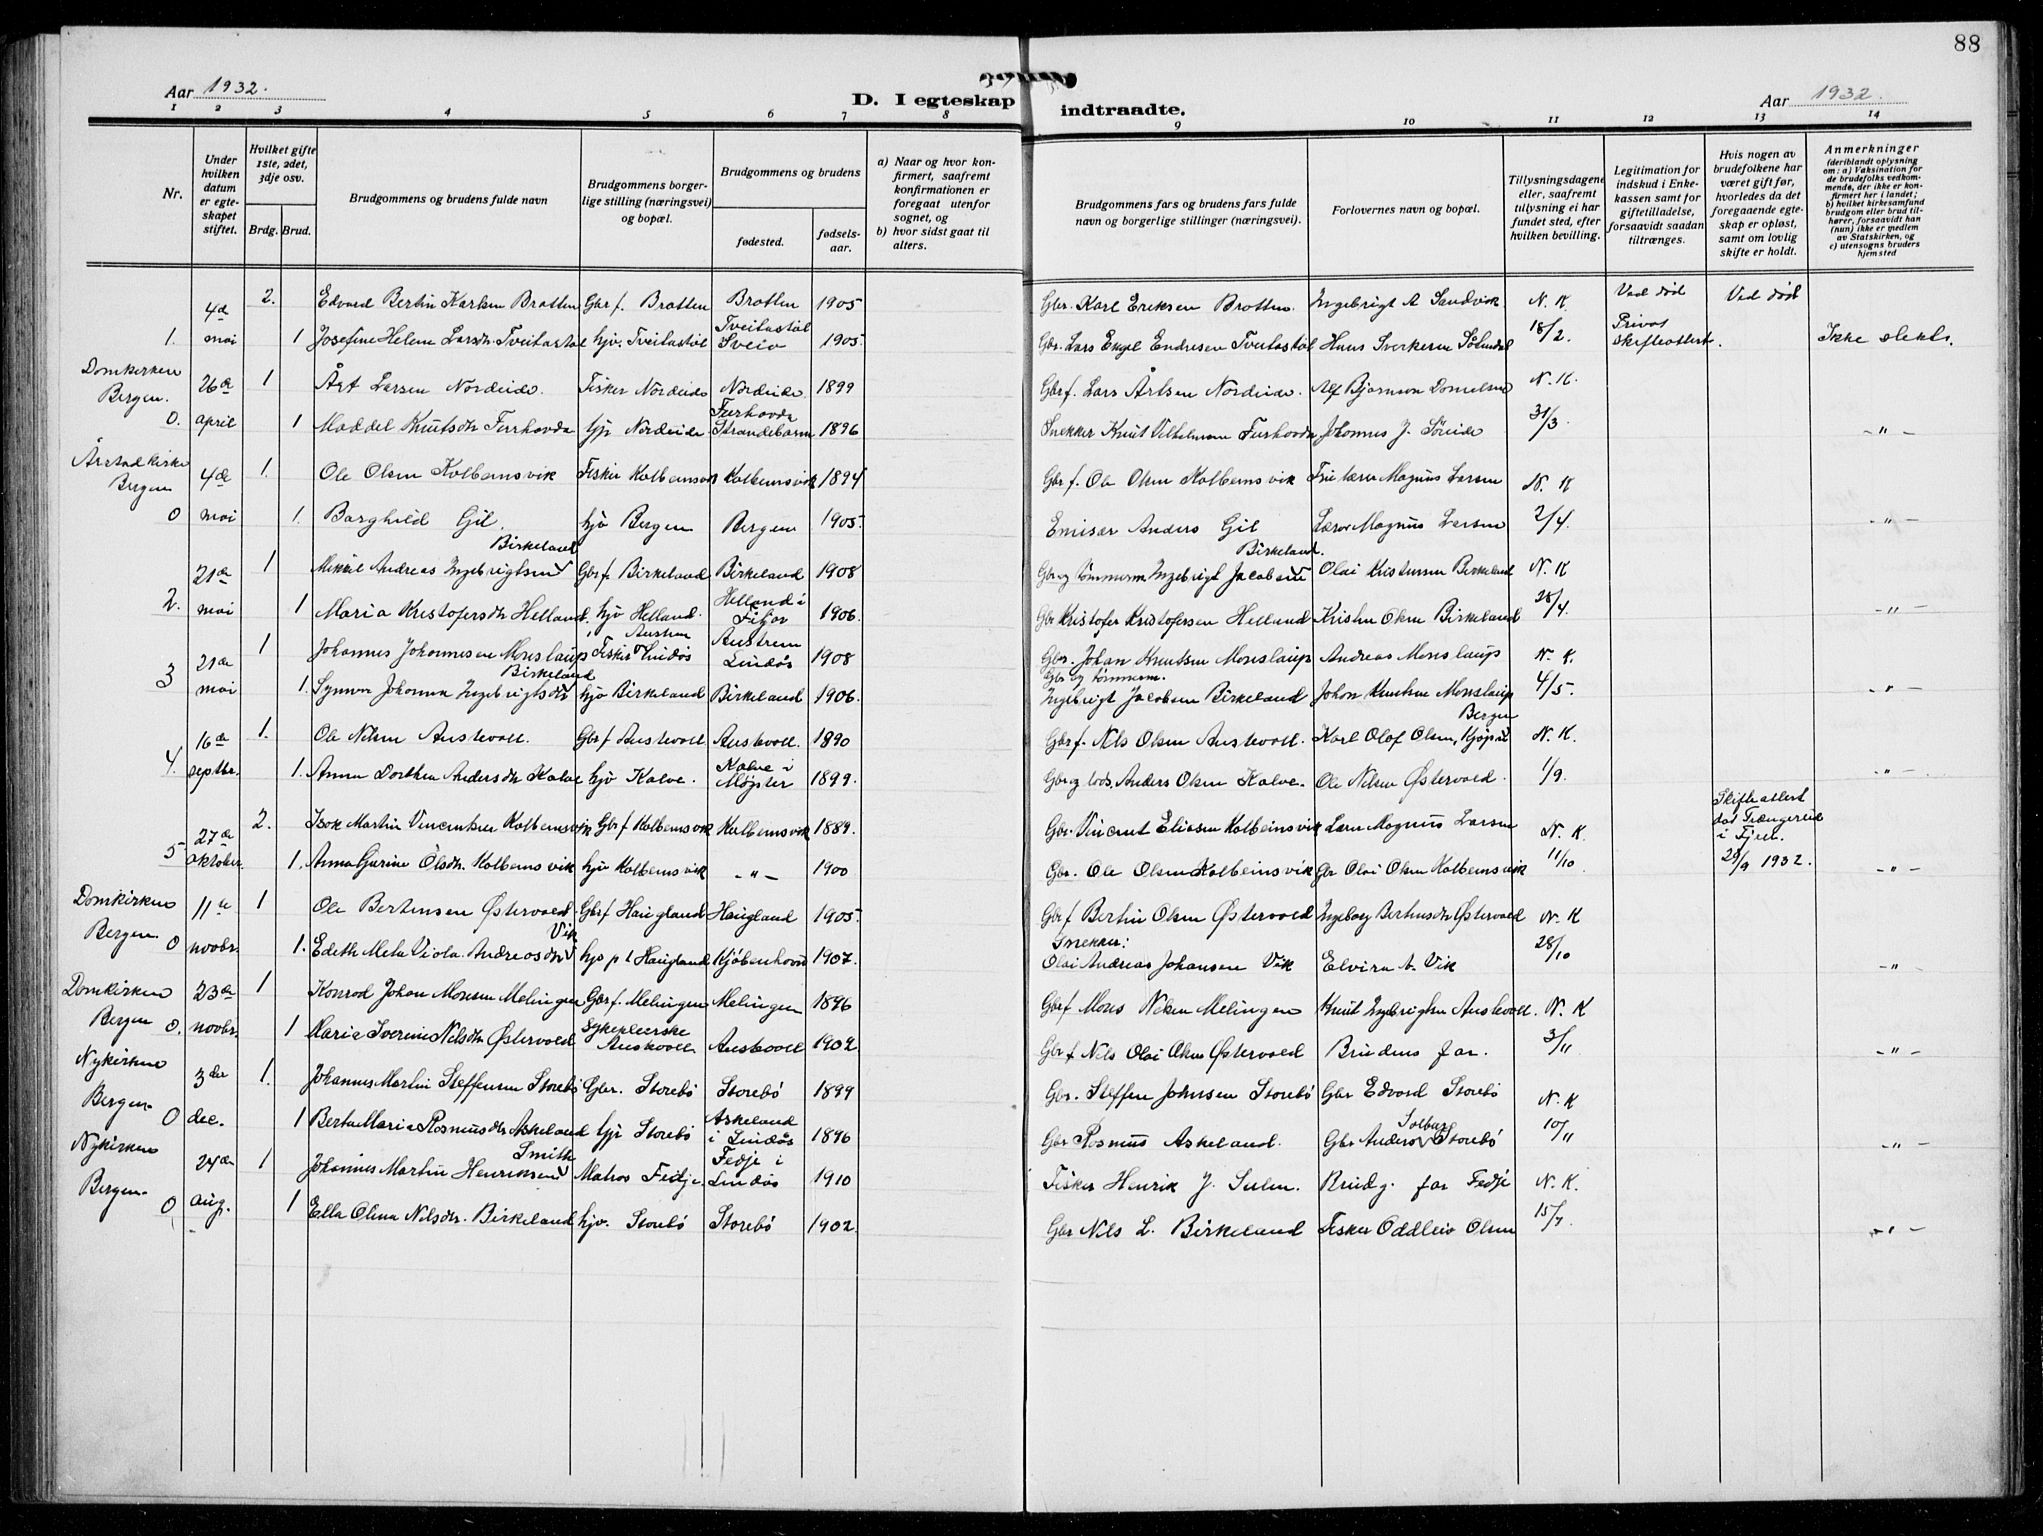 88
Aar 1932.
D. I egteskap indtraadte.
Aar 1932.
1 2 3 4 5 6 7 8 9 10 11 12 13 14
Nr.
Under hvilken datum er egteskapet stiftet.
Hvilket gifte 1ste, 2det, 3dje osv.
Brdg. Brud.
Brudgommens og brudens fulde navn
Brudgommens borgerlige stilling (næringsvei) og bopæl.
Brudgommens og brudens
fødested.
fødselsaar.
a) Naar og hvor konfirmert, saafremt konfirmationen er foregaat utenfor sognet, og
b) hvor sidst gaat til alters.
Brudgommens fars og brudens fars fulde navn og borgerlige stillinger (næringsvei).
Forlovernes navn og bopæl.
Tillysningsdagene eller, saafremt tillysning ei har fundet sted, efter hvilken bevilling.
Legitimation for indskud i Enkekassen samt for giftetilladelse, forsaavidt saadan tiltrænges.
Hvis nogen av brudefolkene har været gift før, hvorledes da det foregaaende egteskap er opløst, samt om lovlig skifte er holdt.
Anmerkninger (deriblandt oplysning om: a) Vaksination for de brudefolks vedkommende, der ikke er konfirmert her i landet; b) hvilket kirkesamfund brudgom eller brud tilhører, forsaavidt han (hun) ikke er medlem av Statskirken, og c) utensogns bruders hjemsted
4de 2. Edvard Bertin Karlsen Bratten Gbr f. Bratten Bratten 1905 Gbr. Karl Eriksen Bratten. Ingebrigt A Sandvik N. K. Ved død Ved død
1. mai 1 Josefine Helene Larsdtr Tveitastøl hjv. Tveitastøl Tveitastøl Sveio 1905. Gbr. Lars Engel Endresen Tveitastøl Hans Sverkersen 18/2. Privat skifteattest. Ikke slekt.
Domkirken Bergen. 26de 1 Årt Larsen Nordeide. Fisker Nordeide Nordeide 1899 Gbr f. Lars Årtsen Nordeide. Alf Bjarnson N. K.
0. april 1 Maddel Knutsdtr Furhovda hjv Nordeide Furhovda Strandebarm 1896 Snekker Knut Vilhelmsen Furhovda Johannes J. Søreide 31/3. -"-
Årstad kirke Bergen 4de 1. Ole Olsen Kolbeinsvik Fisker Kolbeinsvik Kolbeinsvik 1894 Gbr f. Ole Olsen Kolbeinsvik Magnus Larsen N. K
0 mai 1. Borghild Gil. hjv Bergen Bergen 1905. Emisær Anders Gil Lærer Magnus Larsen 2/4. -"-
21de 1 Mikael Andreas Ingebrigtsen Birkeland Gbr f. Birkeland Birkeland 1908 Gbr og tømmerm Ingebrigt Jacobsen Birkeland. Olai Kristensen Birkeland N. K
2. mai 1 Maria Kristofersdtr Helland. hjv Helland. Helland i Fitjar 1906. Gbr Kristofer Kristofersen Helland Kristen Olsen Birkeland 28/4. -"-
3 21de 1 Johannes Johannesen Monslaup Fisker Austrem Lindås Austrem Lindås 1908 Gbr. Johan Knutsen Monslaup Andreas Monslaup N. K.
mai 1. Synnva Johanna Ingebrigtsdtr Birkeland hjv Birkeland Birkeland 1906. Gbr og tømmerm. Ingebrigt Jacobsen Birkeland Johan Knutsen Monslaup 4/5. -"-
16de 1. Ole Nilsen Austevoll. Gbr f Austevoll Austevoll. 1890 Gbr f. Nils Olsen Austevoll. Karl Olaf Olsen, Bergen N. K.
4. septbr. 1. Anna Dorthea Andersdtr Kalve hjv Kalve. Kalve i Møgster 1899. Gbr og lods. Anders Olsen Kalve. Ole Nilsen Østervold. 1/9. -"-
27de 2. Isak Martin Vincentsen Kolbeinsvik Gbr f Kolbeinsvik Kolbeinsvik 1889. Gbr. Vincent Eliasen Kolbeinsvik Lærer Magnus Larsen N. K. Skifteattest
5 oktober. 1. Anna Gurine Olsdtr. Kolbeinsvik hjv Kolbeinsvik -"- 1900 Gbr. Ole Olsen Kolbeinsvik Gbr Olai Olsen Kolbeinsvik 11/10. 29/9 1932. -"-
Domkirken Bergen. 11te 1 Ole Bertinsen Østervold. Gbr f Haugland Haugland 1905. Gbr f Bertin Olsen Østervold Ingeborg Bertinsdtr Østervold N. K
0 novbr. 1. Edith Meta Viola Andreasdtr Vik hjv p t Haugland Kjøbenhavn 1907. Snekker: Olai Andreas Johansen Vik Elvira A. Vik 28/10 -"-
Domkirken Bergen 23de 1 Konrad Johan Monsen Melingen Gbr f. Melingen Melingen 1896 Gbr f Mons Nilsen Melingen Knut Ingebrigtsen Austevoll. N. K
0. novbr. 1 Maria Severine Nilsdtr Østervold Sykepleierske Austevoll Austevoll 1902 Gbr f Nils Olai Olsen Østervold Brudens far. 3/11 -"-
Nykirken Bergen. 3de 1. Johannes Martin Steffensen Storebø Gbr. Storebø Storebø 1899 Gbr. Steffen Johnsen Storebø Gbr Edvard Storebø N. K
0 dec. 1 Berta Maria Rasmusdtr Askeland hjv Storebø Askeland i Lindås 1896 Gbr Rasmus Askeland. Gbr Anders Solberg Storebø 10/11 -"-
Nykirken Bergen. 24de 1 Johannes Martin Henriksen Smith Matros Fedje. Fedje i Lindås 1910 Fisker Henrik J. Sulen. Brudg. far Fedje N. K.
0 aug. 1 Ella Olena Nilsdtr. Birkeland hjv. Storebø Storebø 1902. Gbr Nils L. Birkeland Fisker Oddleiv Olsen 15/7. -"-